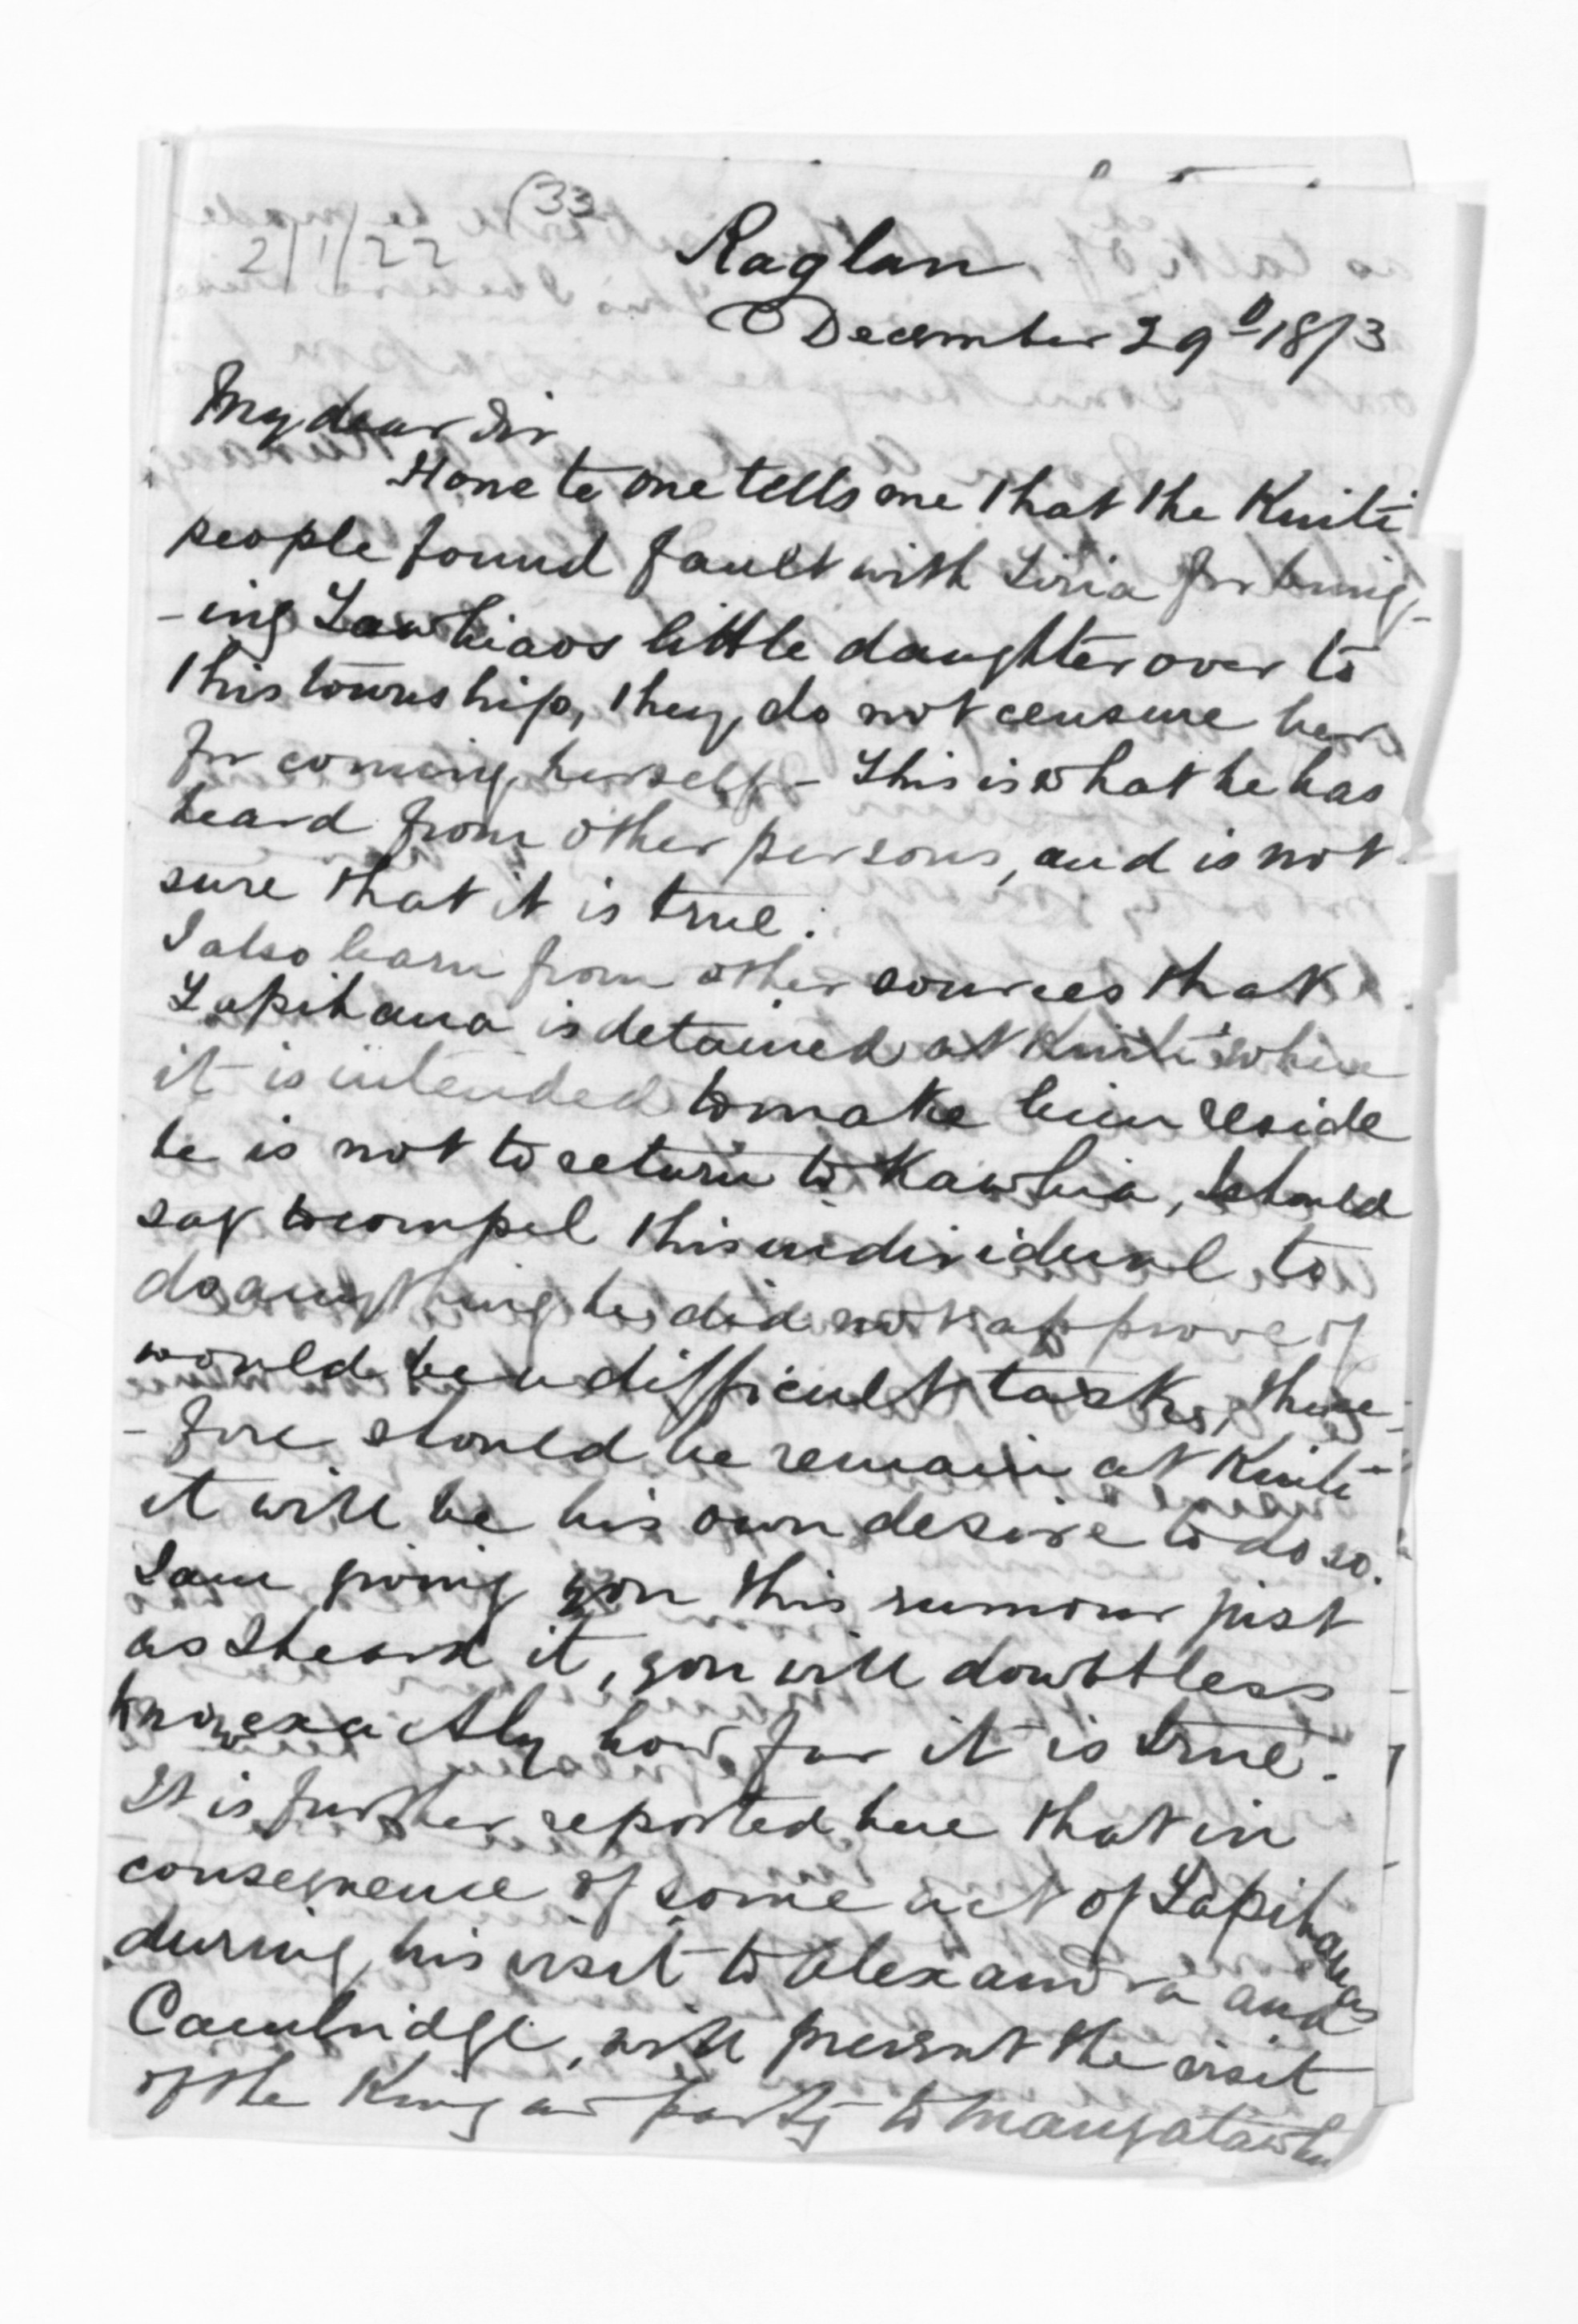 (33
2/1/22
Raglan
December 29th 1873
My dear Sir
Hone te One tells me that the Kuiti
people found fault with Tiria for bring-
-ing Tawhiaos little daughter over to
this township, they do not censure her
for coming herself - This is what he has
heard from other persons, and is not
sure that it is true.
I also learn from other sources that
Tapihana is detained at Kuiti where
it is intended to make him reside
he is not to return to Kawhia, I should
say to compel this individual to
do anything he did not approve of
would be a difficult task, there-
-fore should he remain at Kuiti
it will be his own desire to do so.
I am giving you this rumour just
as I heard it, you will doubtless
know exactly how far it is true.
It is further reported here that in
consequence of some act of Tapihanas
during his visit to Alexandra and
Cambridge, will prevent the visit
of the King and party to Mangatawhiri